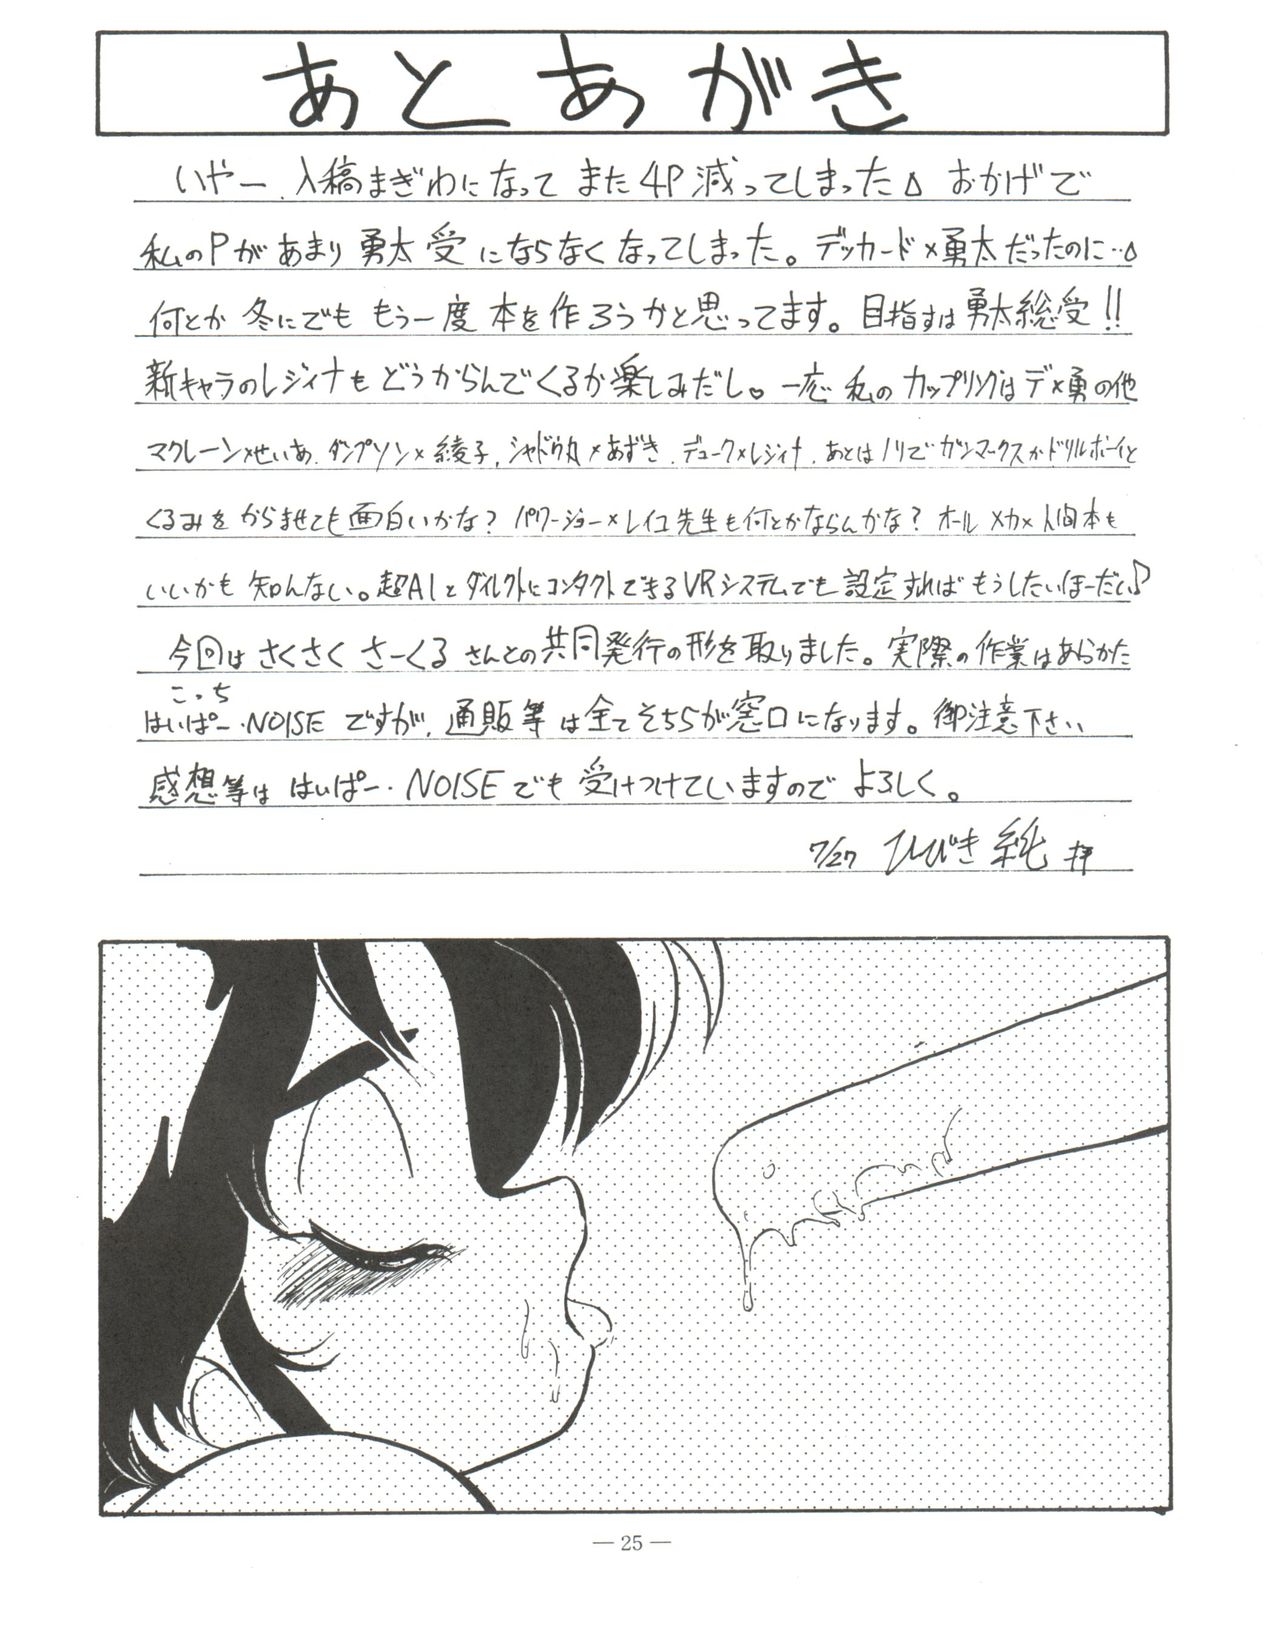 あとあがき
いやー、入稿まぎわになって また4P減ってしまった おかげで
私のPがあまり勇太受にならなくなってしまった。デッカード×勇太だったのに…
何とか冬にでも もう一度 本を作ろうかと思ってます。目指すは勇太総受!!
新キャラのレジィナもどうからんでくるか楽しみだし♡ 一応 私のカップリングはデ×勇の他
マクレーン×せいあ、ダンプソン×綾子、シャドウ丸×あずき、デューク×レジィナ、あとはノリでガンマックスかドリルボーイと
くるみをからませても面白いかな? パワージョー×レイコ先生も何とかならんかな? オールメカ×人間本も
いいかも知んない。超AIとダイレクトにコンタクトできるVRシステムでも設定すればもうしたいほーだい♪
今回はさくさくさーくるさんとの共同発行の形を取りました。実際の作業はあらかた
こっち
はいぱー・NOISEですが、通販等は全てそちらが窓口になります。御注意下さい
感想等ははいぱー・NOISEでも受けつけていますのでよろしく。
7/27 ひびき純 拝
— 25 —